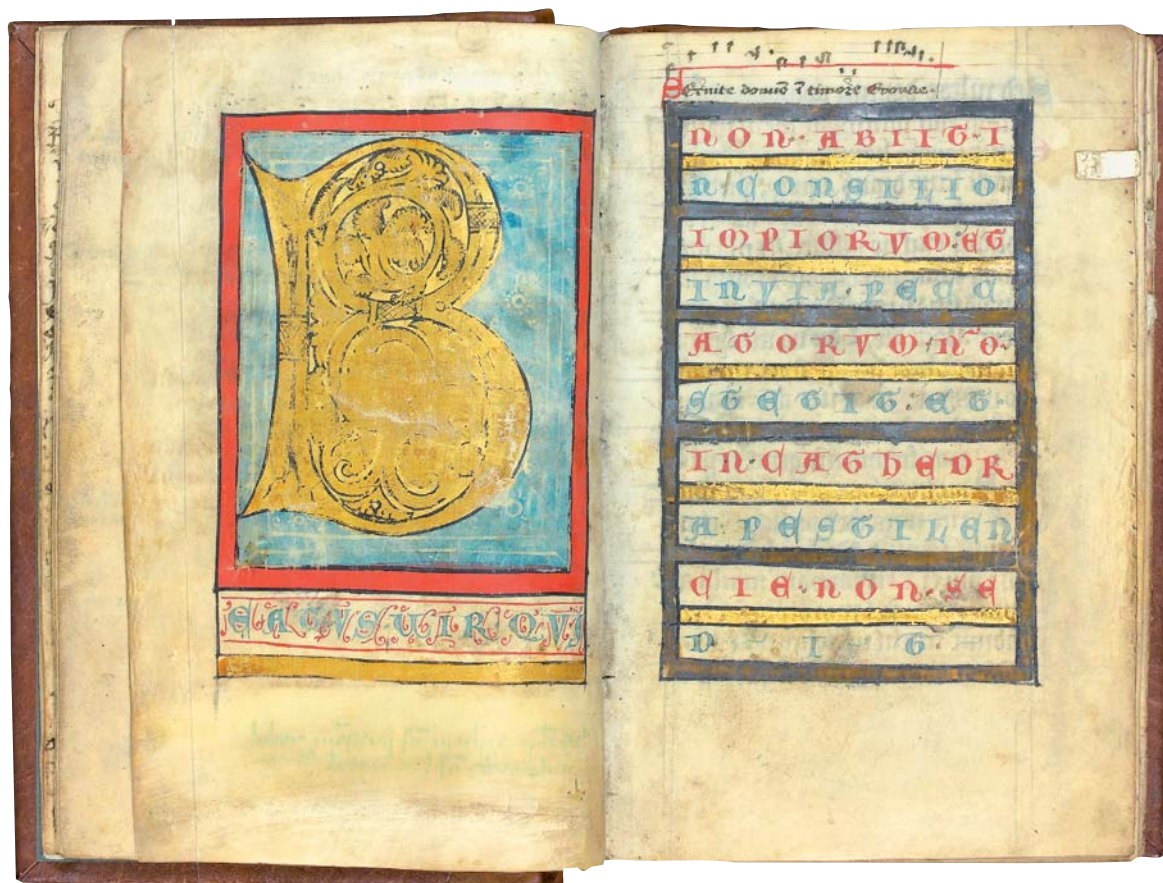 B
EATUS UIR QUI
Seruite domino i timore Euouae.
NON · ABIIT · I
N CONSILIO
IMPIORVM · ET
IN VIA · PECC
ATORVM · NO ·
STETIT · ET ·
IN · CATHEDR
A PESTILEN
CIE · NON · SE
D I T